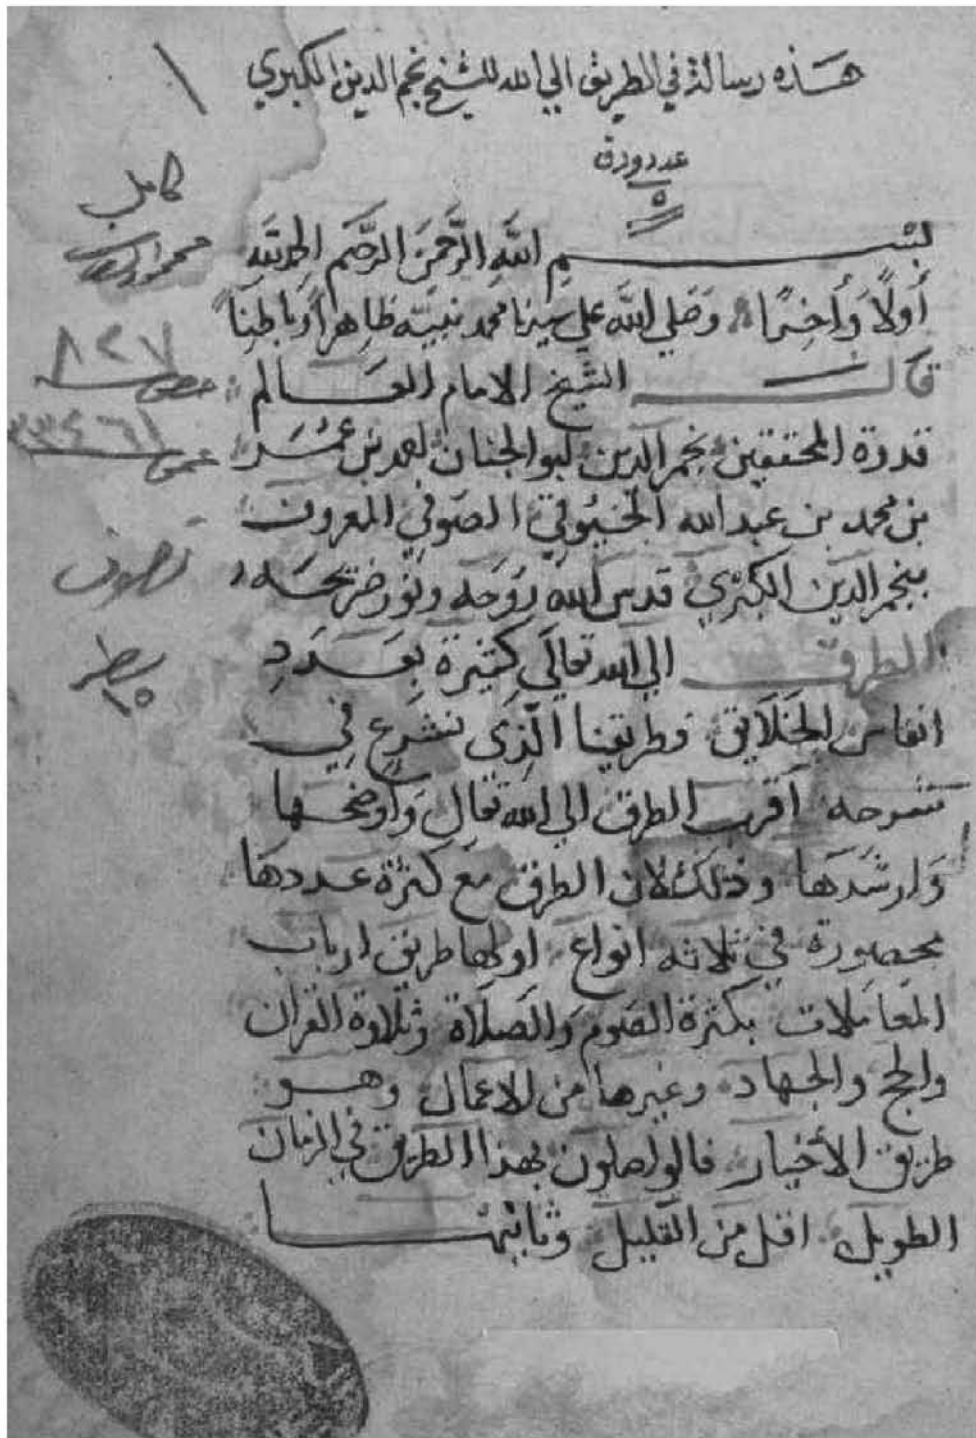 هذه رسالة في الطريق الي الله للشيخ نجم الدين الكبري
١
عدد ورق
٥
كامل
بسم الله الرحمن الرحيم الحمد لله
أولاً وأخرًا وصلي الله علي سيدنا محمد نبيه ظاهراً وباطنًا
قال الشيخ الامام العالم
قدوة المحققين نجم الدين ابو الجنان احمد بن عمر
بن محمد بن عبد الله الخيوقي الصوفي المعروف
بنجم الدين الكبري قدس الله روحه ونور ضريحه
الطرق الي الله تعالي كثيرة بعدد
انفاس الخلايق وطريقنا الذي نشرع في
شرحه اقرب الطرق الي الله تعالي وأوضحها
وارشدها وذلك لان الطرق مع كثرة عددها
محصورة في ثلاثة انواع اولها طريق ارباب
المعاملات بكثرة الصوم والصلاة وتلاوة القران
والحج والجهاد وغيرها من الاعمال وهو
طريق الأخيار فالواصلون بهذا الطريق في الزمان
الطويل اقل من القليل وثانيها
٨٢٧
خصوص
عمو
تصوف
سطر
١٥